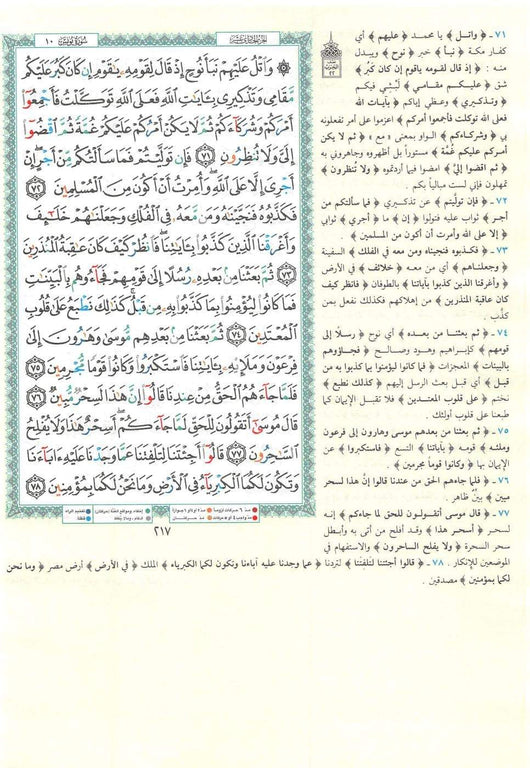 سورة يونس ١٠
الجزء الحادي عشر
۞ وَاتْلُ عَلَيْهِمْ نَبَأَ نُوحٍ إِذْ قَالَ لِقَوْمِهِ يَٰقَوْمِ إِن كَانَ كَبُرَ عَلَيْكُم
مَّقَامِي وَتَذْكِيرِي بِـَٔايَٰتِ اللَّهِ فَعَلَى اللَّهِ تَوَكَّلْتُ فَأَجْمِعُوٓا
أَمْرَكُمْ وَشُرَكَآءَكُمْ ثُمَّ لَا يَكُنْ أَمْرُكُمْ عَلَيْكُمْ غُمَّةً ثُمَّ اقْضُوٓا
إِلَيَّ وَلَا تُنظِرُونِ ٧١ فَإِن تَوَلَّيْتُمْ فَمَا سَأَلْتُكُم مِّنْ أَجْرٍ إِنْ
أَجْرِيَ إِلَّا عَلَى اللَّهِ وَأُمِرْتُ أَنْ أَكُونَ مِنَ الْمُسْلِمِينَ ٧٢
فَكَذَّبُوهُ فَنَجَّيْنَٰهُ وَمَن مَّعَهُ فِي الْفُلْكِ وَجَعَلْنَٰهُمْ خَلَٰٓئِفَ
وَأَغْرَقْنَا الَّذِينَ كَذَّبُوا بِـَٔايَٰتِنَا فَانظُرْ كَيْفَ كَانَ عَٰقِبَةُ الْمُنذَرِينَ
٧٣ ثُمَّ بَعَثْنَا مِن بَعْدِهِ رُسُلًا إِلَىٰ قَوْمِهِمْ فَجَآءُوهُم بِالْبَيِّنَٰتِ
فَمَا كَانُوا لِيُؤْمِنُوا بِمَا كَذَّبُوا بِهِ مِن قَبْلُ كَذَٰلِكَ نَطْبَعُ عَلَىٰ قُلُوبِ
الْمُعْتَدِينَ ٧٤ ثُمَّ بَعَثْنَا مِن بَعْدِهِم مُّوسَىٰ وَهَٰرُونَ إِلَىٰ
فِرْعَوْنَ وَمَلَإِيهِ بِـَٔايَٰتِنَا فَاسْتَكْبَرُوا وَكَانُوا قَوْمًا مُّجْرِمِينَ ٧٥
فَلَمَّا جَآءَهُمُ الْحَقُّ مِنْ عِندِنَا قَالُوٓا إِنَّ هَٰذَا لَسِحْرٌ مُّبِينٌ ٧٦
قَالَ مُوسَىٰٓ أَتَقُولُونَ لِلْحَقِّ لَمَّا جَآءَكُمْ أَسِحْرٌ هَٰذَا وَلَا يُفْلِحُ
السَّٰحِرُونَ ٧٧ قَالُوٓا أَجِئْتَنَا لِتَلْفِتَنَا عَمَّا وَجَدْنَا عَلَيْهِ ءَابَآءَنَا
وَتَكُونَ لَكُمَا الْكِبْرِيَآءُ فِي الْأَرْضِ وَمَا نَحْنُ لَكُمَا بِمُؤْمِنِينَ ٧٨
٢١٧
٧١ - ﴿ واتل ﴾ يا محمد ﴿ عليهم ﴾ أي
كفار مكة ﴿ نبأ ﴾ خبر ﴿ نوح ﴾ ويبدل
منه : ﴿ إذ قال لقومه ياقوم إن كان كَبُرَ ﴾
شق ﴿ عليكم مقامي ﴾ لبثي فيكم
﴿ وتذكيري ﴾ وعظي إياكم ﴿ بآيات الله
فعلى الله توكلت فأجمعوا أمركم ﴾ اعزموا على أمر تفعلونه
بي ﴿ وشركاءكم ﴾ الواو بمعنى « مع » ﴿ ثم لا يكن
أمركم عليكم غُمَّة ﴾ مستوراً بل أظهروه وجاهروني به
﴿ ثم اقضوا إليَّ ﴾ امضوا فيما أردتموه ﴿ ولا تُنظرون ﴾
تمهلون فإني لست مبالياً بكم .
٧٢ - ﴿ فإن توليتم ﴾ عن تذكيري ﴿ فما سألتكم من
أجر ﴾ ثواب عليه فتولوا ﴿ إن ﴾ ما ﴿ أجري ﴾ ثوابي
﴿ إلا على الله وأمرت أن أكون من المسلمين ﴾ .
٧٣ - ﴿ فكذبوه فنجيناه ومن معه في الفلك ﴾ السفينة
﴿ وجعلناهم ﴾ أي من معه ﴿ خلائف ﴾ في الأرض
﴿ وأغرقنا الذين كذبوا بآياتنا ﴾ بالطوفان ﴿ فانظر كيف
كان عاقبة المنذَرين ﴾ من إهلاكهم فكذلك نفعل بمن
كذَّب .
٧٤ - ﴿ ثم بعثنا من بعده ﴾ أي نوح ﴿ رسلًا إلى
قومهم ﴾ كإبراهيم وهود وصالح ﴿ فجاءوهم
بالبينات ﴾ المعجزات ﴿ فما كانوا ليؤمنوا بما كذبوا به من
قبل ﴾ أي قبل بعث الرسل إليهم ﴿ كذلك نطبع ﴾
نختم ﴿ على قلوب المعتدين ﴾ فلا تقبل الإيمان كما
طبعنا على قلوب أولئك .
٧٥ - ﴿ ثم بعثنا من بعدهم موسى وهارون إلى فرعون
وملئه ﴾ قومه ﴿ بآياتنا ﴾ التسع ﴿ فاستكبروا ﴾ عن
الإيمان بها ﴿ وكانوا قوماً مجرمين ﴾ .
٧٦ - ﴿ فلما جاءهم الحق من عندنا قالوا إن هذا لسحر
مبين ﴾ بيِّن ظاهر .
٧٧ - ﴿ قال موسى أتقولون للحق لما جاءكم ﴾ إنه
لسحر ﴿ أسحر هذا ﴾ وقد أفلح من أتى به وأبطل
سحر السحرة ﴿ ولا يفلح الساحرون ﴾ والاستفهام في
الموضعين للإنكار . ٧٨ - ﴿ قالوا أجئتنا لتلفتنا ﴾ لتردنا ﴿ عما وجدنا عليه آباءنا وتكون لكما الكبرياء ﴾ الملك ﴿ في الأرض ﴾ أرض مصر ﴿ وما نحن
لكما بمؤمنين ﴾ مصدقين .